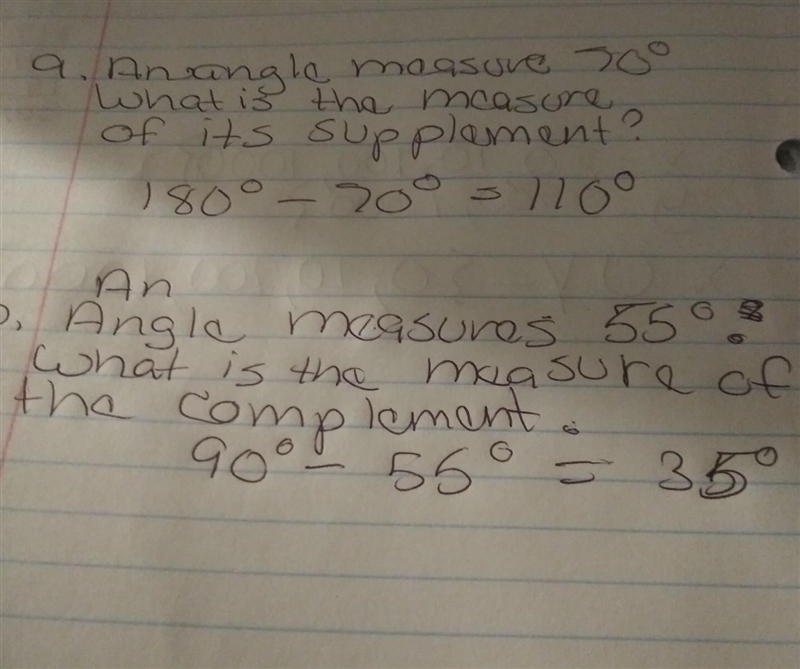 a. An angle measure 70°
What is the measure
of its supplement?
180° - 70° = 110°
An
Angle measures 55°.
What is the measure of
the complement.
90° - 55° = 35°